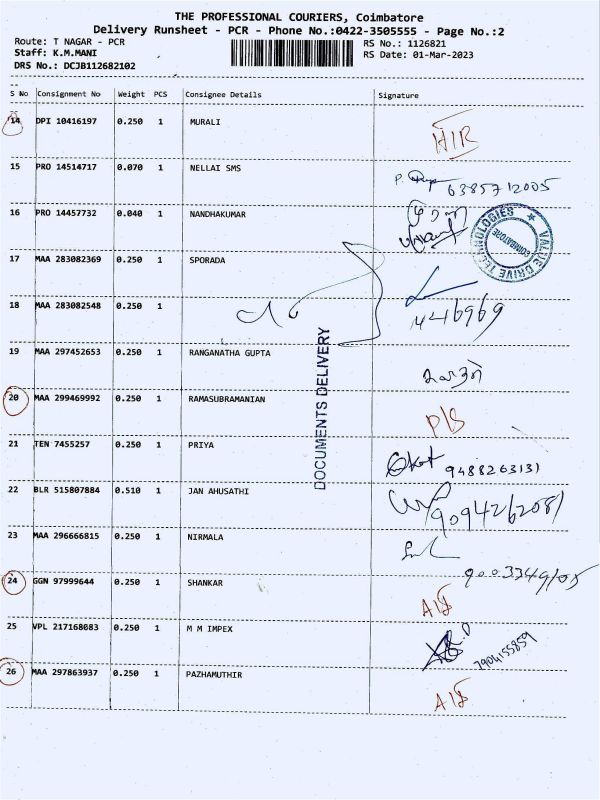 THE PROFESSIONAL COURIERS, Coimbatore
Delivery Runsheet - PCR - Phone No.:0422-3505555 - Page No.:2
Route: T NAGAR - PCR RS No.: 1126821
Staff: K.M.MANI RS Date: 01-Mar-2023
DRS No.: DCJB112682102
S No Consignment No Weight PCS Consignee Details Signature
14 DPI 10416197 0.250 1 MURALI
15 PRO 14514717 0.070 1 NELLAI SMS 6385712005
16 PRO 14457732 0.040 1 NANDHAKUMAR
VALUE DRIVE TECHNOLOGIES ★ COIMBATORE
17 MAA 283082369 0.250 1 SPORADA
18 MAA 283082548 0.250 1
DOCUMENTS DELIVERY
19 MAA 297452653 0.250 1 RANGANATHA GUPTA
20 MAA 299469992 0.250 1 RAMASUBRAMANIAN
21 TEN 7455257 0.250 1 PRIYA 9488263131
22 BLR 515807884 0.510 1 JAN AHUSATHI
23 MAA 296666815 0.250 1 NIRMALA
24 GGN 97999644 0.250 1 SHANKAR
25 VPL 217168083 0.250 1 M M IMPEX 7904155859
26 MAA 297863937 0.250 1 PAZHAMUTHIR